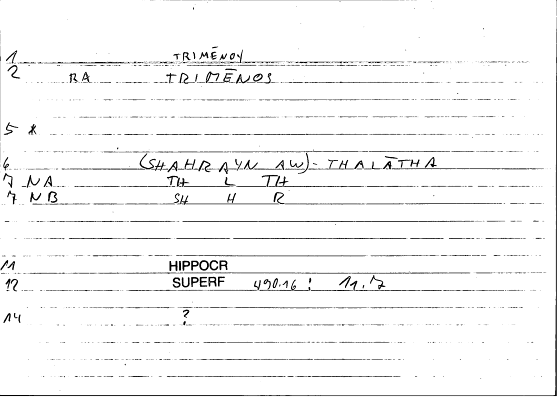 1 TRIMĒNOY
2 RA TRIMĒNOS
5 *
6 (SHAHRAYN AW)-THALĀTHA
7 NA TH L TH
7 NB SH H R
11 HIPPOCR
12 SUPERF 490.16 : 11.7
14 ?